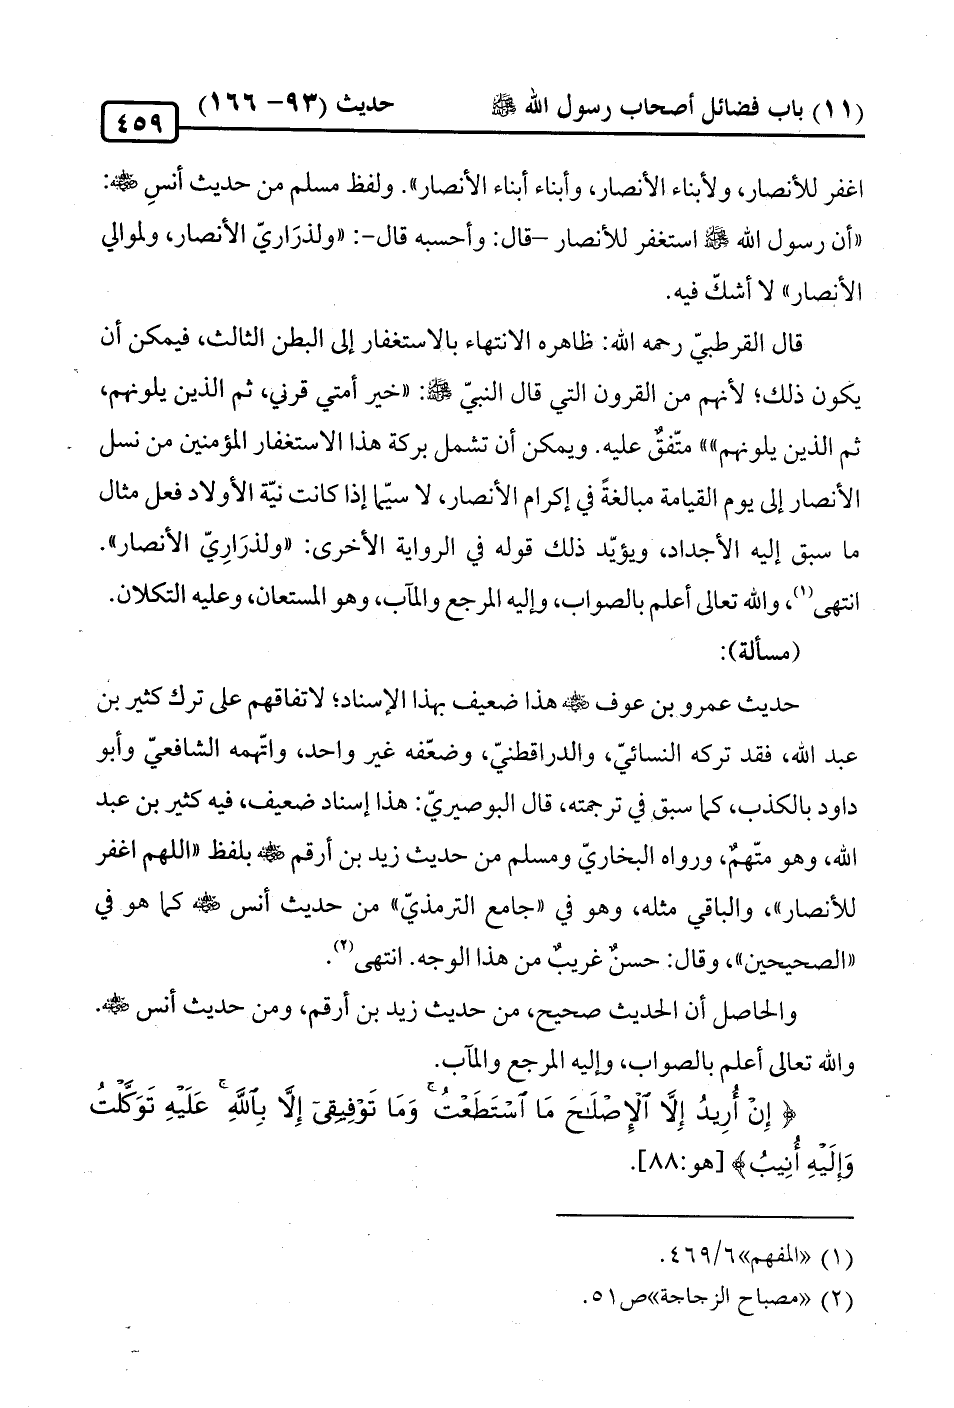 (١١) باب فضائل أصحاب رسول الله ﷺ حديث (٩٣- ١٦٦)
٤٥٩
اغفر للأنصار، ولأبناء الأنصار، وأبناء أبناء الأنصار». ولفظ مسلم من حديث أنسٍ رضي الله عنه:
«أن رسول الله ﷺ استغفر للأنصار –قال: وأحسبه قال–: «ولذرَاريّ الأنصار، ولموالي
الأنصار» لا أشكّ فيه.
قال القرطبيّ رحمه الله: ظاهره الانتهاء بالاستغفار إلى البطن الثالث، فيمكن أن
يكون ذلك؛ لأنهم من القرون التي قال النبيّ ﷺ: «خير أمتي قرني، ثم الذين يلونهم،
ثم الذين يلونهم»» متّفقٌ عليه. ويمكن أن تشمل بركة هذا الاستغفار المؤمنين من نسل
الأنصار إلى يوم القيامة مبالغةً في إكرام الأنصار، لا سيّما إذا كانت نيّة الأولاد فعل مثال
ما سبق إليه الأجداد، ويؤيّد ذلك قوله في الرواية الأخرى: «ولذرَارِيّ الأنصار».
انتهى(١)، والله تعالى أعلم بالصواب، وإليه المرجع والمآب، وهو المستعان، وعليه التكلان.
(مسألة):
حديث عمرو بن عوف رضي الله عنه هذا ضعيف بهذا الإسناد؛ لاتفاقهم على ترك كثير بن
عبد الله، فقد تركه النسائيّ، والدراقطنيّ، وضعّفه غير واحد، واتّهمه الشافعيّ وأبو
داود بالكذب، كما سبق في ترجمته، قال البوصيريّ: هذا إسناد ضعيف، فيه كثير بن عبد
الله، وهو متّهمٌ، ورواه البخاريّ ومسلم من حديث زيد بن أرقم رضي الله عنه بلفظ «اللهم اغفر
للأنصار»، والباقي مثله، وهو في «جامع الترمذيّ» من حديث أنس رضي الله عنه كما هو في
«الصحيحين»، وقال: حسنٌ غريبٌ من هذا الوجه. انتهى(٢).
والحاصل أن الحديث صحيح، من حديث زيد بن أرقم، ومن حديث أنس رضي الله عنه.
والله تعالى أعلم بالصواب، وإليه المرجع والمآب.
﴿ إِنْ أُرِيدُ إِلَّا ٱلْإِصْلَٰحَ مَا ٱسْتَطَعْتُ ۚ وَمَا تَوْفِيقِىٓ إِلَّا بِٱللَّهِ ۚ عَلَيْهِ تَوَكَّلْتُ
وَإِلَيْهِ أُنِيبُ﴾ [هو:٨٨].
(١) «المفهم»٤٦٩/٦.
(٢) «مصباح الزجاجة»ص٥١.